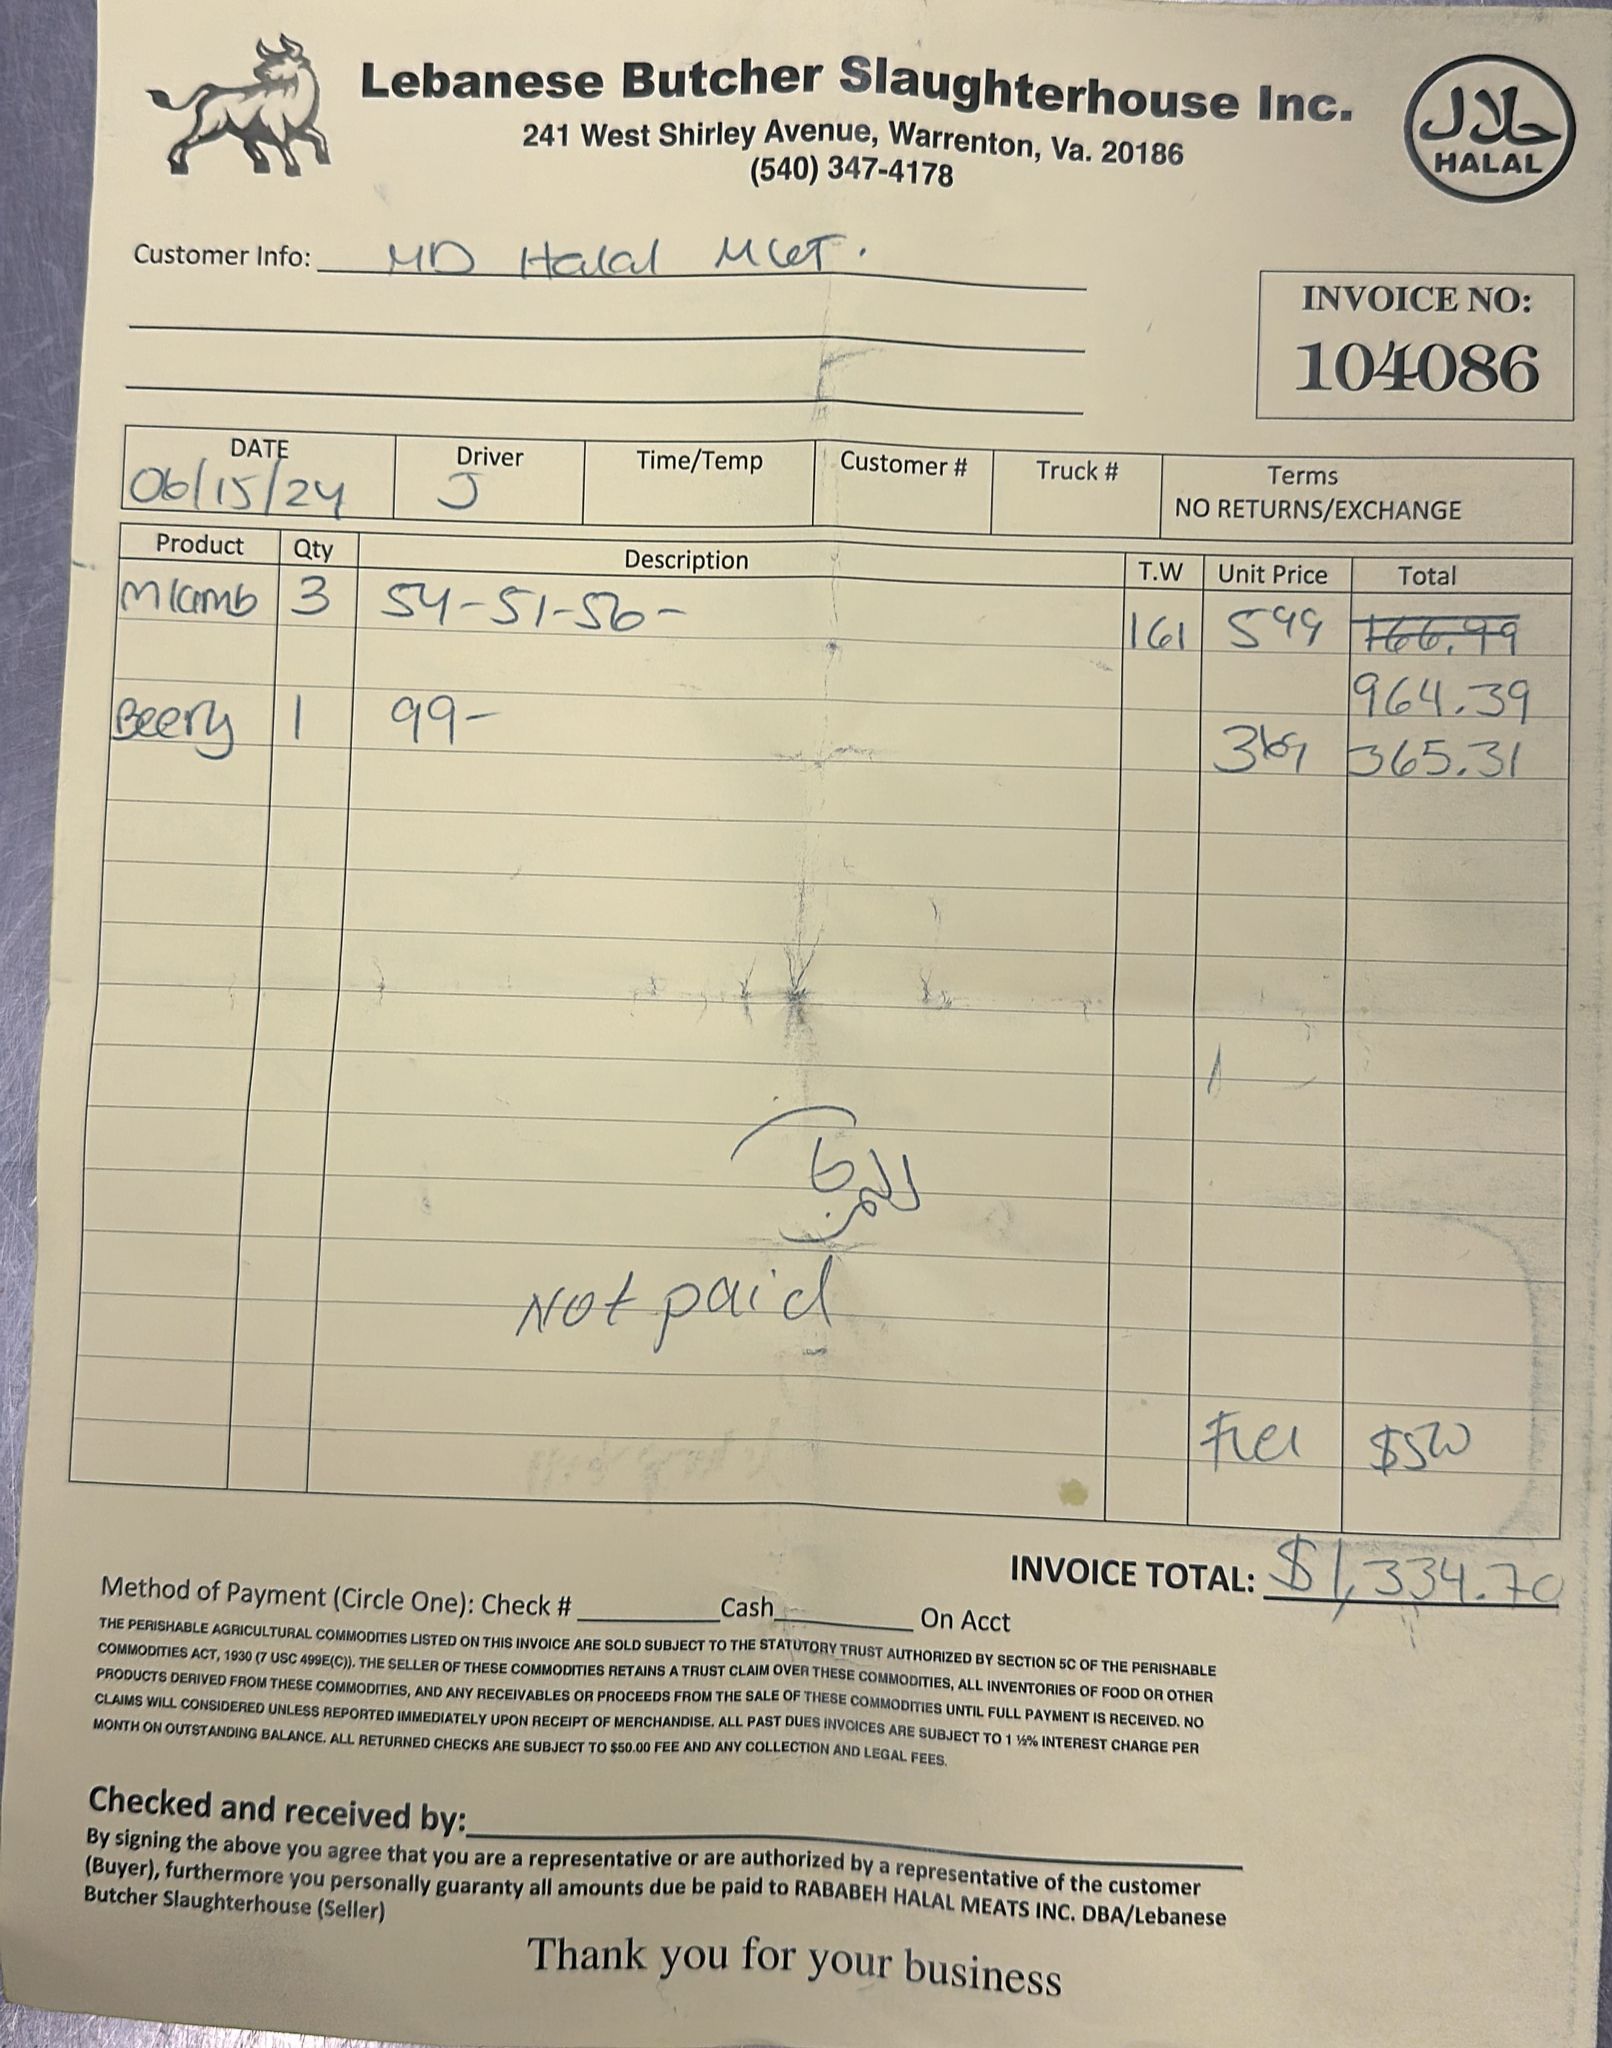 Lebanese Butcher Slaughterhouse Inc.
241 West Shirley Avenue, Warrenton, Va. 20186
(540) 347-4178
حلال
HALAL
Customer Info: MD Halal MKT.
INVOICE NO:
104086
DATE Driver Time/Temp Customer # Truck # Terms
06/15/24 J NO RETURNS/EXCHANGE
Product Qty Description T.W Unit Price Total
Mlamb 3 54-51-56- 161 5 99 766.99
964.39
1 99- 3 69 365.31
Not paid
Fuel $5 00
INVOICE TOTAL: $1,334.70
Method of Payment (Circle One): Check # Cash On Acct
THE PERISHABLE AGRICULTURAL COMMODITIES LISTED ON THIS INVOICE ARE SOLD SUBJECT TO THE STATUTORY TRUST AUTHORIZED BY SECTION 5C OF THE PERISHABLE
COMMODITIES ACT, 1930 (7 USC 499E(C)). THE SELLER OF THESE COMMODITIES RETAINS A TRUST CLAIM OVER THESE COMMODITIES, ALL INVENTORIES OF FOOD OR OTHER
PRODUCTS DERIVED FROM THESE COMMODITIES, AND ANY RECEIVABLES OR PROCEEDS FROM THE SALE OF THESE COMMODITIES UNTIL FULL PAYMENT IS RECEIVED. NO
CLAIMS WILL CONSIDERED UNLESS REPORTED IMMEDIATELY UPON RECEIPT OF MERCHANDISE. ALL PAST DUES INVOICES ARE SUBJECT TO 1 ½% INTEREST CHARGE PER
MONTH ON OUTSTANDING BALANCE. ALL RETURNED CHECKS ARE SUBJECT TO $50.00 FEE AND ANY COLLECTION AND LEGAL FEES.
Checked and received by:
By signing the above you agree that you are a representative or are authorized by a representative of the customer
(Buyer), furthermore you personally guaranty all amounts due be paid to RABABEH HALAL MEATS INC. DBA/Lebanese
Butcher Slaughterhouse (Seller)
Thank you for your business